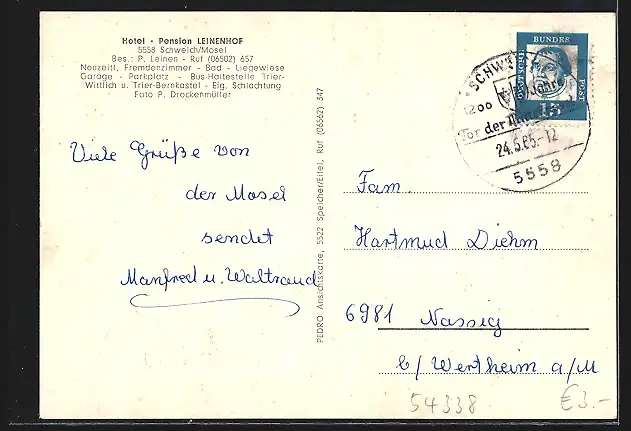 Hotel - Pension LEINENHOF
5558 Schweich/Mosel
Bes.: P. Leinen - Ruf (06502) 657
Neuzeitl. Fremdenzimmer - Bad - Liegewiese
Garage - Parkplatz - Bus-Haltestelle Trier-
Wittlich u. Trier-Bernkastel - Eig. Schlachtung
Foto P. Drockenmüller
Viele Grüße von
der Mosel
sendet
Manfred u. Waltraud
PEDRO Ansichtskarte, 5522 Speicher/Eifel, Ruf (06562) 347
DEUTSCHE
BUNDES
POST
15
SCHW
1200 Jahre
Tor der
24.5.65.-12
5558
Fam.
Hartmud Diehm
6981 Nassig
b/ Wertheim a/M
54338
€3.-